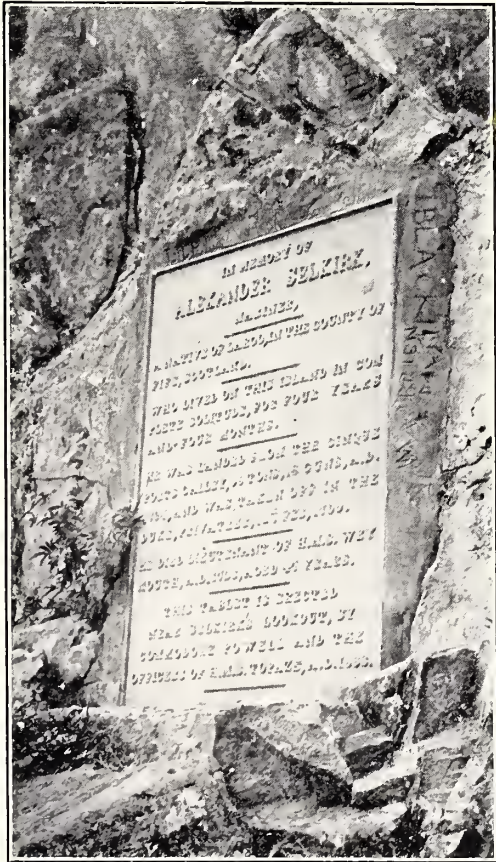 IN MEMORY OF
ALEXANDER SELKIRK,
MARINER,
A NATIVE OF LARGO, IN THE COUNTY OF
FIFE, SCOTLAND.
WHO LIVED ON THIS ISLAND IN COM
PLETE SOLITUDE, FOR FOUR YEARS
AND FOUR MONTHS.
HE WAS LANDED FROM THE CINQUE
PORTS GALLEY, TONS, GUNS, A.D.
AND WAS TAKEN OFF IN THE
DUKE, PRIVATEER, FEB,
HE DIED LIEUTENANT OF H.M.S. WEY
MOUTH, A.D. AGED YEARS.
THIS TABLET IS ERECTED
NEAR SELKIRK'S LOOKOUT, BY
COMMODORE POWELL AND THE
OFFICERS OF H.M.S. TOPAZE, A.D. 1868.